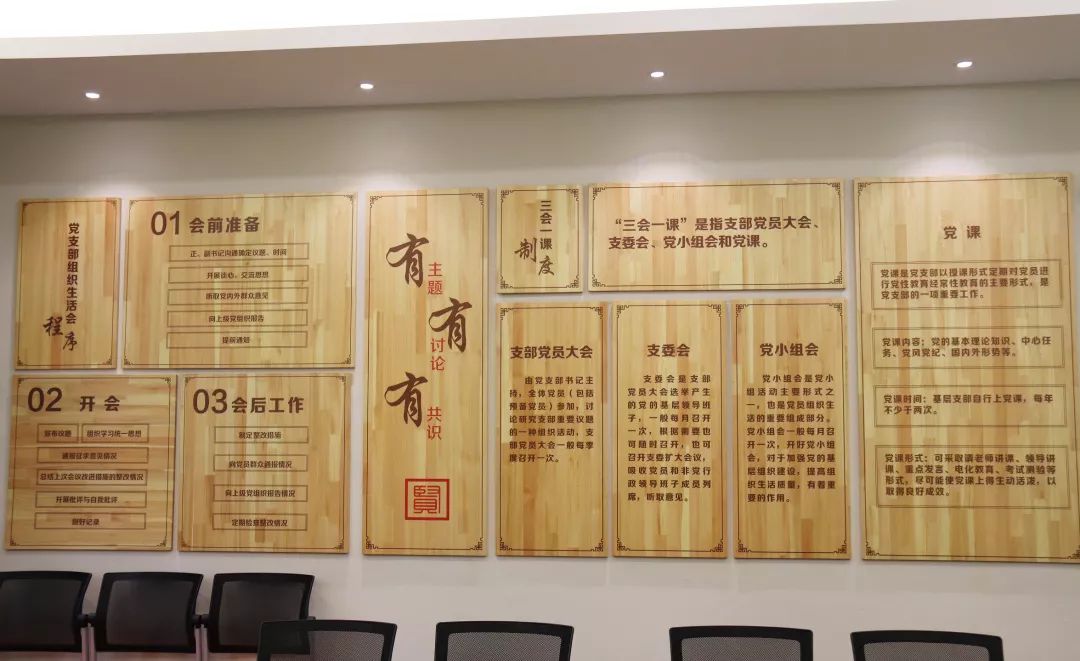 党支部组织生活会
程序
01 会前准备
正、副书记沟通确定议题、时间
开展谈心，交流思想
听取党内外群众意见
向上级党组织报告
提前通知
02 开会
颁布议题 组织学习统一思想
通报征求意见情况
总结上次会议改进措施的整改情况
开展批评与自我批评
做好记录
03 会后工作
制定整改措施
向党员群众通报情况
向上级党组织报告情况
定期检查整改情况
有主题
有讨论
有共识
賢
三会一课
制度
“三会一课”是指支部党员大会、
支委会、党小组会和党课。
支部党员大会
由党支部书记主
持，全体党员（包括
预备党员）参加，讨
论研究支部重要议题
的一种组织活动，支
部党员大会一般每季
度召开一次。
支委会
支委会是支部
党员大会选举产生
的党的基层领导班
子，一般每月召开
一次，根据需要也
可随时召开，也可
召开支委扩大会议，
吸收党员和非党行
政领导班子成员列
席，听取意见。
党小组会
党小组会是党小
组活动主要形式之
一，也是党员组织生
活的重要组成部分。
党小组会一般每月召
开一次，开好党小组
会，对于加强党的基
层组织建设，提高组
织生活质量，有着重
要的作用。
党课
党课是党支部以授课形式定期对党员进
行党性教育经常性教育的主要形式，是
党支部的一项重要工作。
党课内容：党的基本理论知识、中心任
务、党风党纪、国内外形势等。
党课时间：基层支部自行上党课，每年
不少于两次。
党课形式：可采取请老师讲课、领导讲
课、重点发言、电化教育、考试测验等
形式，尽可能使党课上得生动活泼，以
取得良好成效。